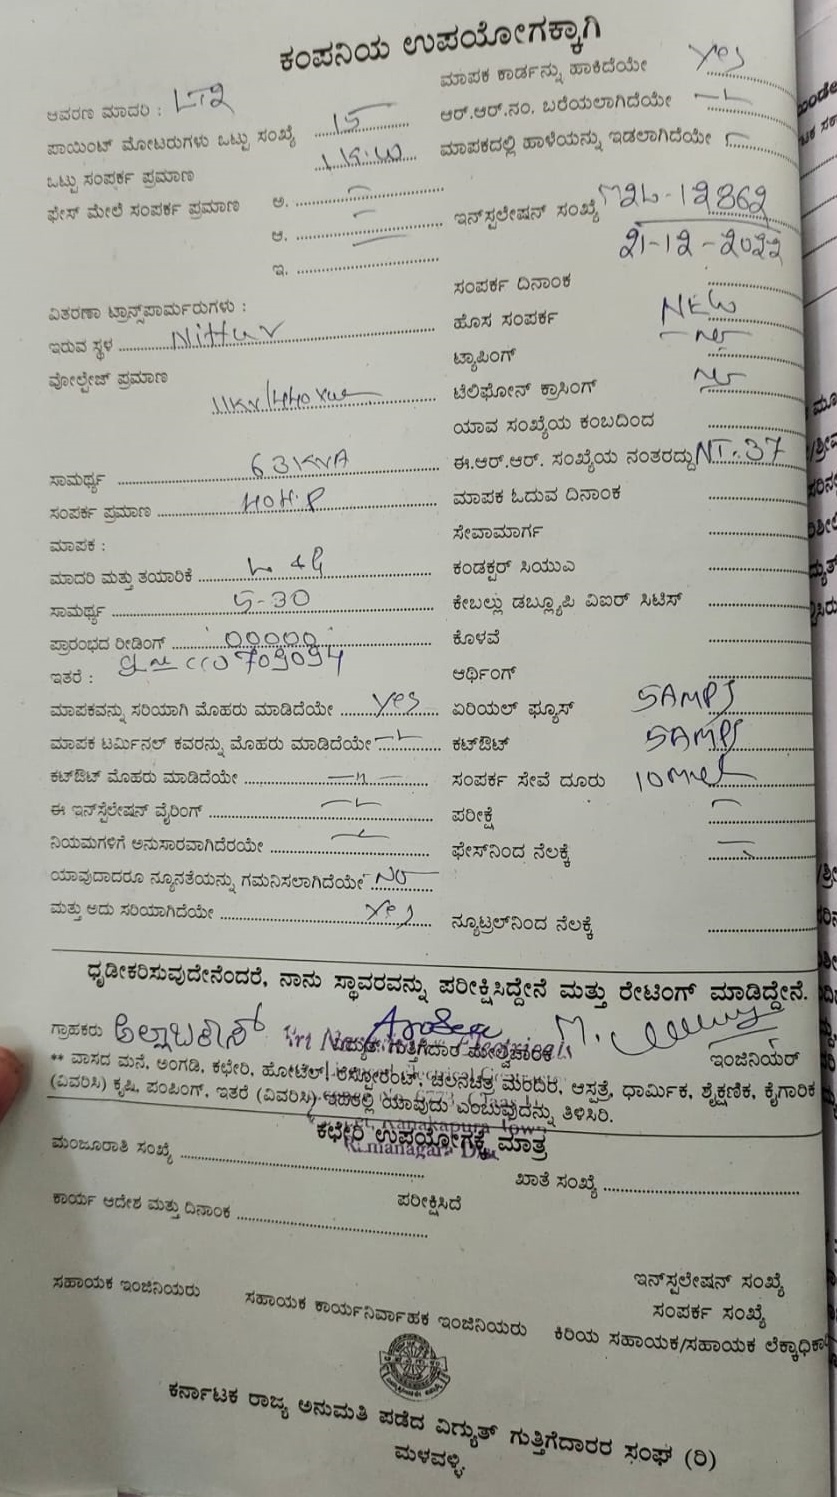 ಕಂಪನಿಯ ಉಪಯೋಗಕ್ಕಾಗಿ
ಆವರಣ ಮಾದರಿ : LT2
ಮಾಪಕ ಕಾರ್ಡನ್ನು ಹಾಕಿದೆಯೇ Yes
ಪಾಯಿಂಟ್ ಮೋಟರುಗಳು ಒಟ್ಟು ಸಂಖ್ಯೆ 15
ಆರ್.ಆರ್.ನಂ. ಬರೆಯಲಾಗಿದೆಯೇ
ಒಟ್ಟು ಸಂಪರ್ಕ ಪ್ರಮಾಣ 1K.W
ಮಾಪಕದಲ್ಲಿ ಹಾಳೆಯನ್ನು ಇಡಲಾಗಿದೆಯೇ
ಫೇಸ್ ಮೇಲೆ ಸಂಪರ್ಕ ಪ್ರಮಾಣ ಅ.
ಇನ್‌ಸ್ಪಲೇಷನ್ ಸಂಖ್ಯೆ M2L-12862
ಆ.
21-12-2022
ಇ.
ಸಂಪರ್ಕ ದಿನಾಂಕ
ವಿತರಣಾ ಟ್ರಾನ್ಸ್‌ಪಾರ್ಮರುಗಳು :
ಹೊಸ ಸಂಪರ್ಕ NEW
ಇರುವ ಸ್ಥಳ Nittur
ಟ್ಯಾಪಿಂಗ್ no
ವೋಲ್ಟೇಜ್ ಪ್ರಮಾಣ 11KV/440
ಟೆಲಿಫೋನ್ ಕ್ರಾಸಿಂಗ್ no
ಯಾವ ಸಂಖ್ಯೆಯ ಕಂಬದಿಂದ
ಸಾಮರ್ಥ್ಯ 63KVA
ಈ.ಆರ್.ಆರ್. ಸಂಖ್ಯೆಯ ನಂತರದ್ದು NT.37
ಸಂಪರ್ಕ ಪ್ರಮಾಣ 40H.P
ಮಾಪಕ ಓದುವ ದಿನಾಂಕ
ಮಾಪಕ :
ಸೇವಾಮಾರ್ಗ
ಮಾದರಿ ಮತ್ತು ತಯಾರಿಕೆ L&G
ಕಂಡಕ್ಟರ್ ಸಿಯುಎ
ಸಾಮರ್ಥ್ಯ 5-30
ಕೇಬಲ್ಲು ಡಬ್ಲ್ಯೂಪಿ ವಿಐರ್ ಸಿಟಿಸ್
ಪ್ರಾರಂಭದ ರೀಡಿಂಗ್ 00000
ಕೊಳವೆ
ಇತರೆ : 709094
ಆರ್ಥಿಂಗ್
ಮಾಪಕವನ್ನು ಸರಿಯಾಗಿ ಮೊಹರು ಮಾಡಿದೆಯೇ Yes
ಏರಿಯಲ್ ಫ್ಯೂಸ್ 5AMPS
ಮಾಪಕ ಟರ್ಮಿನಲ್ ಕವರನ್ನು ಮೊಹರು ಮಾಡಿದೆಯೇ
ಕಟ್‌ಔಟ್ 5AMPS
ಕಟ್‌ಔಟ್ ಮೊಹರು ಮಾಡಿದೆಯೇ —"—
ಸಂಪರ್ಕ ಸೇವೆ ದೂರು 10met
ಈ ಇನ್‌ಸ್ಪೆಲೇಷನ್ ವೈರಿಂಗ್
ಪರೀಕ್ಷೆ
ನಿಯಮಗಳಿಗೆ ಅನುಸಾರವಾಗಿದೆರಯೇ
ಫೇಸ್‌ನಿಂದ ನೆಲಕ್ಕೆ
ಯಾವುದಾದರೂ ನ್ಯೂನತೆಯನ್ನು ಗಮನಿಸಲಾಗಿದೆಯೇ NO
ಮತ್ತು ಅದು ಸರಿಯಾಗಿದೆಯೇ Yes
ನ್ಯೂಟ್ರಲ್‌ನಿಂದ ನೆಲಕ್ಕೆ
ಧೃಡೀಕರಿಸುವುದೇನೆಂದರೆ, ನಾನು ಸ್ಥಾವರವನ್ನು ಪರೀಕ್ಷಿಸಿದ್ದೇನೆ ಮತ್ತು ರೇಟಿಂಗ್ ಮಾಡಿದ್ದೇನೆ.
ಗ್ರಾಹಕರು ಅಲ್ಲಾಬಕಾಷ್ ವಿದ್ಯುತ್ ಗುತ್ತಿಗೆದಾರ ಮೇಲ್ವಿಚಾರಕ ಇಂಜಿನಿಯರ್
** ವಾಸದ ಮನೆ, ಅಂಗಡಿ, ಕಛೇರಿ, ಹೋಟೆಲ್, ರೆಸ್ಟೋರೆಂಟ್, ಚಲನಚಿತ್ರ ಮಂದಿರ, ಆಸ್ಪತ್ರೆ, ಧಾರ್ಮಿಕ, ಶೈಕ್ಷಣಿಕ, ಕೈಗಾರಿಕೆ
(ವಿವರಿಸಿ) ಕೃಷಿ, ಪಂಪಿಂಗ್, ಇತರೆ (ವಿವರಿಸಿ) ಇದರಲ್ಲಿ ಯಾವುದು ಎಂಬುವುದನ್ನು ತಿಳಿಸಿರಿ.
ಕಛೇರಿ ಉಪಯೋಗಕ್ಕೆ ಮಾತ್ರ
ಮಂಜೂರಾತಿ ಸಂಖ್ಯೆ
ಖಾತೆ ಸಂಖ್ಯೆ
ಕಾರ್ಯ ಆದೇಶ ಮತ್ತು ದಿನಾಂಕ
ಪರೀಕ್ಷಿಸಿದೆ
ಇನ್‌ಸ್ಪಲೇಷನ್ ಸಂಖ್ಯೆ
ಸಂಪರ್ಕ ಸಂಖ್ಯೆ
ಸಹಾಯಕ ಇಂಜಿನಿಯರು ಸಹಾಯಕ ಕಾರ್ಯನಿರ್ವಾಹಕ ಇಂಜಿನಿಯರು ಕಿರಿಯ ಸಹಾಯಕ/ಸಹಾಯಕ ಲೆಕ್ಕಾಧಿಕಾರಿ
ಕರ್ನಾಟಕ ರಾಜ್ಯ ಅನುಮತಿ ಪಡೆದ ವಿದ್ಯುತ್ ಗುತ್ತಿಗೆದಾರರ ಸಂಘ (ರಿ)
ಮಳವಳ್ಳಿ